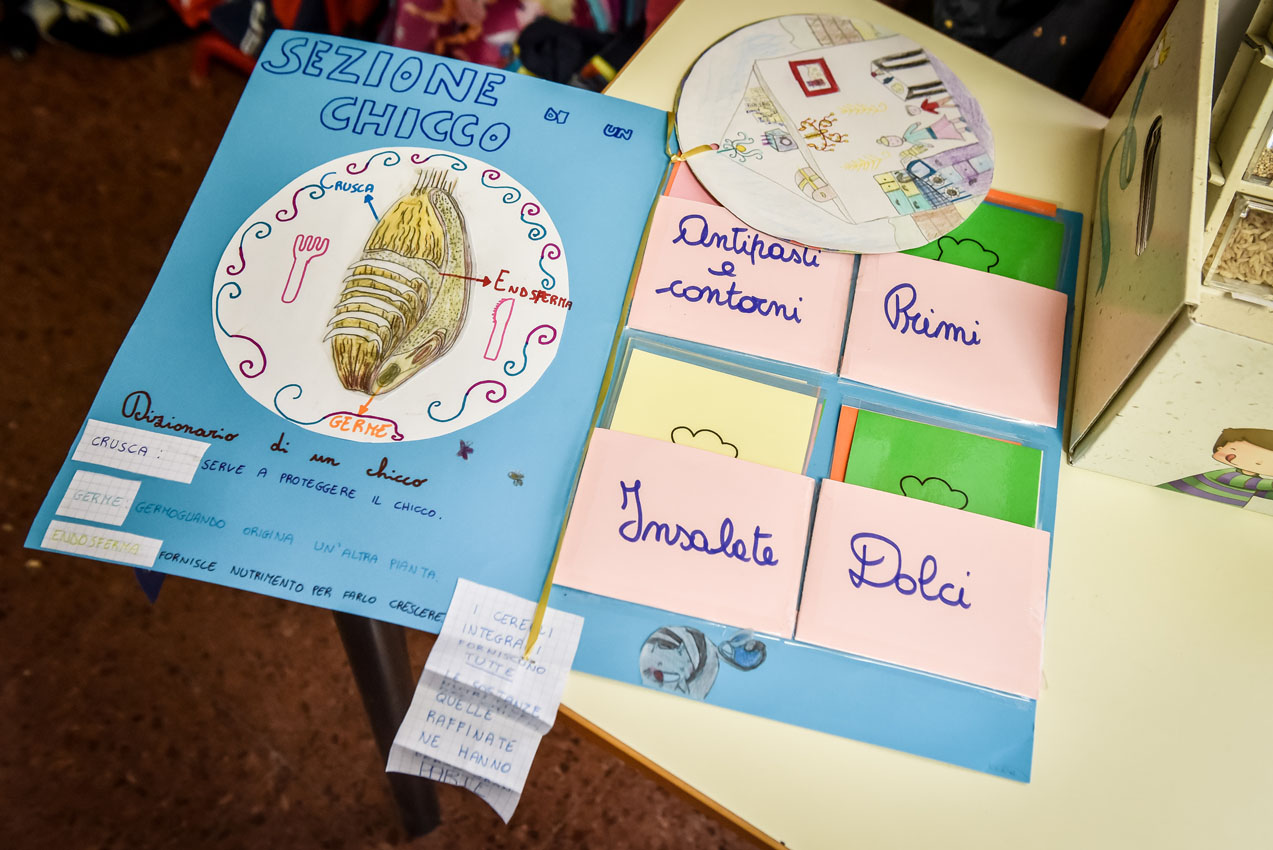 SEZIONE DI UN
CHICCO
CRUSCA
ENDSFERMA
GERME
Dizionario di un chicco
CRUSCA: SERVE A PROTEGGERE IL CHICCO.
GERME: GERMOGLIANDO ORIGINA UN'ALTRA PIANTA.
ENDOSFERMA FORNISCE NUTRIMENTO PER FARLO CRESCERE
I CEREALI
INTEGRALI
FORNISCONO
TUTTE
LE SOSTANZE
QUELLE
RAFFINATE
NE HANNO
Antipasti
e
contorni
Primi
Insalate
Dolci